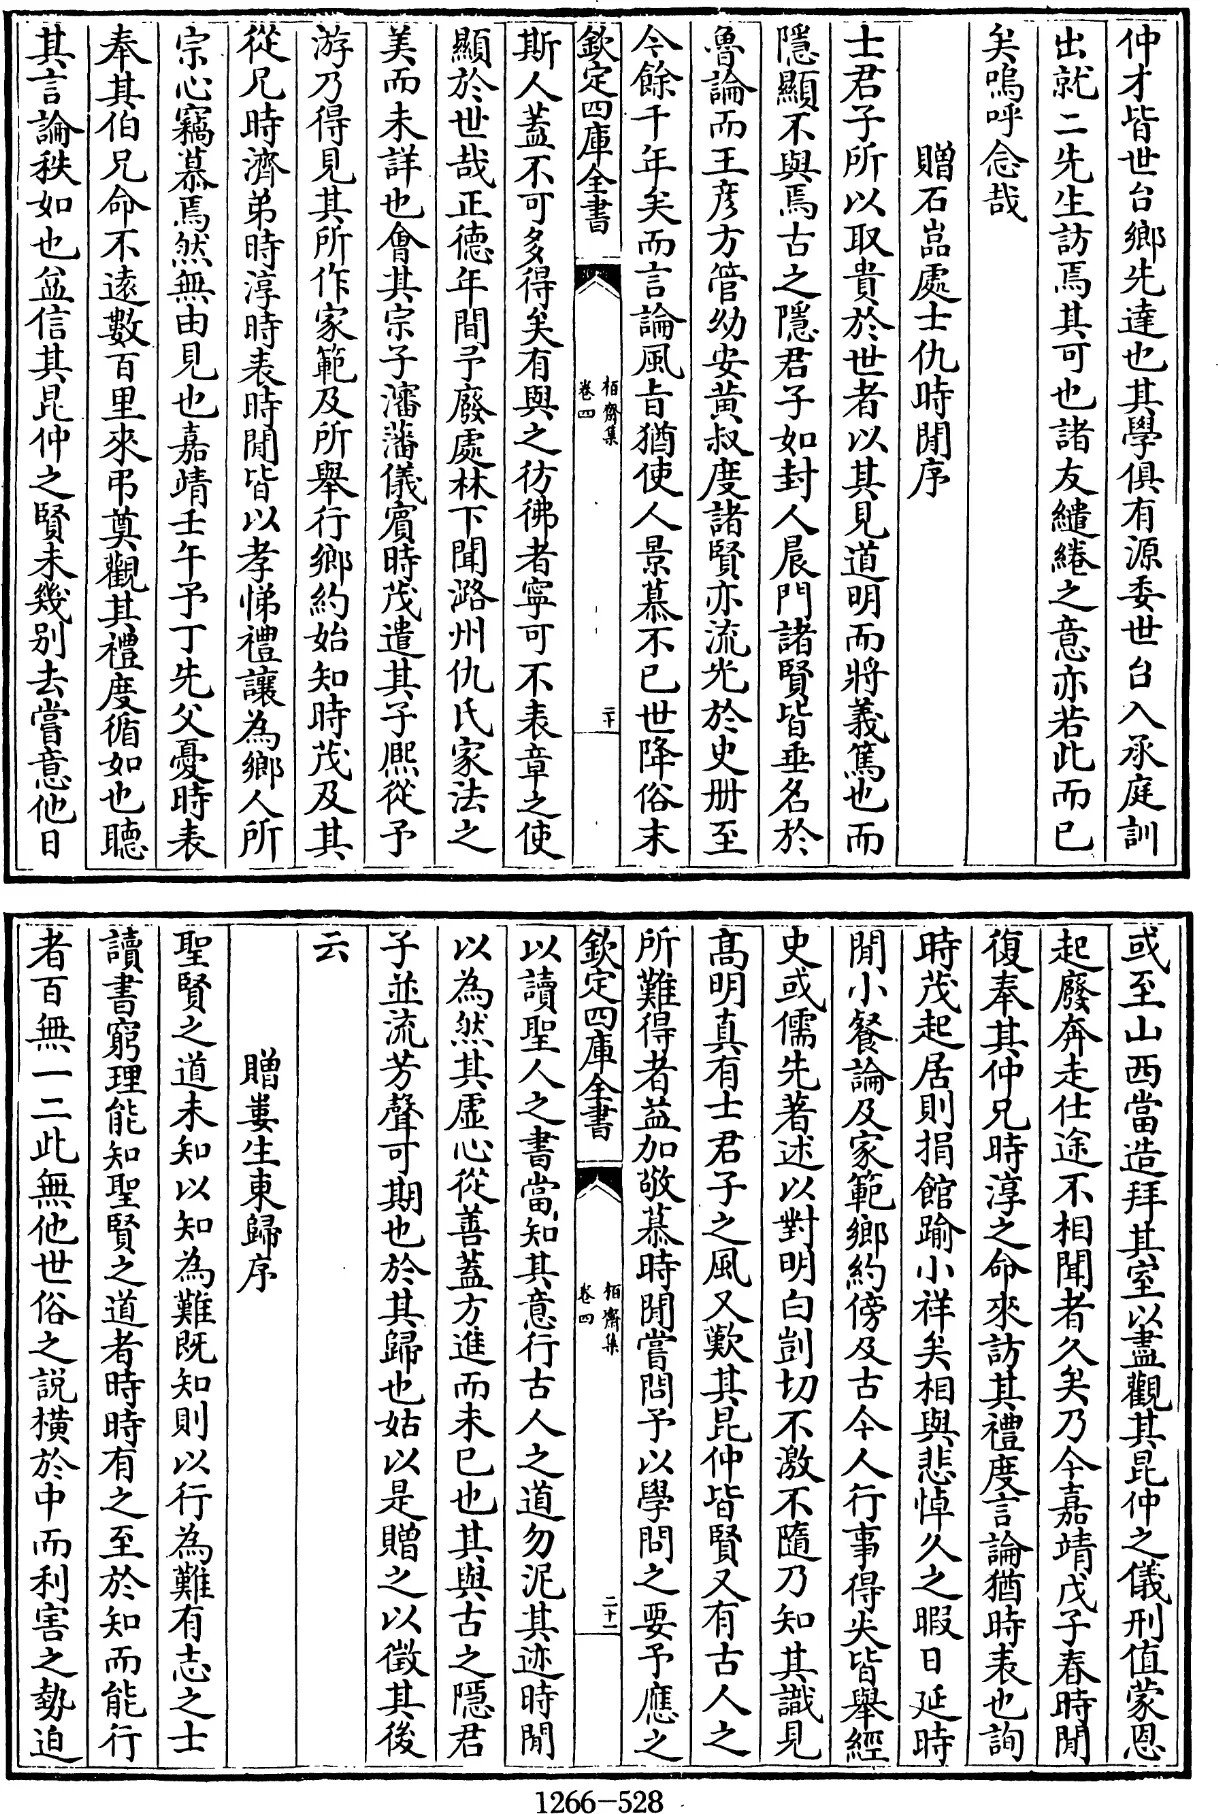 仲才皆世台鄉先達也其學俱有源委世台入承庭訓
出就二先生訪焉其可也諸友繾綣之意亦若此而已
矣嗚呼念哉
贈石嵓處士仇時閒序
士君子所以取貴於世者以其見道明而將義篤也而
隱顯不與焉古之隱君子如封人晨門諸賢皆垂名於
魯論而王彥方管幼安黃叔度諸賢亦流光於史册至
今餘千年矣而言論風旨猶使人景慕不已世降俗末
欽定四庫全書
栢齋集
卷四
二十
斯人蓋不可多得矣有與之彷彿者寧可不表章之使
顯於世哉正德年間予廢處林下聞潞州仇氏家法之
美而未詳也會其宗子瀋藩儀賓時茂遣其子熙從予
游乃得見其所作家範及所舉行鄉約始知時茂及其
從兄時濟弟時淳時表時閒皆以孝悌禮讓為鄉人所
宗心竊慕焉然無由見也嘉靖壬午予丁先父憂時表
奉其伯兄命不遠數百里來弔奠觀其禮度循如也聽
其言論秩如也益信其昆仲之賢未幾别去嘗意他日
或至山西當造拜其室以盡觀其昆仲之儀刑值蒙恩
起廢奔走仕途不相聞者久矣乃今嘉靖戊子春時閒
復奉其仲兄時淳之命來訪其禮度言論猶時表也詢
時茂起居則捐館踰小祥矣相與悲悼久之暇日延時
閒小餐論及家範鄉約傍及古今人行事得失皆舉經
史或儒先著述以對明白剴切不激不隨乃知其識見
高明真有士君子之風又歎其昆仲皆賢又有古人之
所難得者益加敬慕時閒嘗問予以學問之要予應之
欽定四庫全書
栢齋集
卷四
二十一
以讀聖人之書當知其意行古人之道勿泥其迹時閒
以為然其虛心從善蓋方進而未已也其與古之隱君
子並流芳聲可期也於其歸也姑以是贈之以徵其後
云
贈婁生東歸序
聖賢之道未知以知為難既知則以行為難有志之士
讀書窮理能知聖賢之道者時時有之至於知而能行
者百無一二此無他世俗之説橫於中而利害之勢迫
1266-528